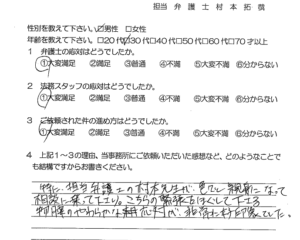 担当 弁護士 村本拓哉
性別を教えて下さい。☑男性 □女性
年齢を教えて下さい。□20代☑30代□40代□50代□60代□70才以上
1 弁護士の応対はどうでしたか。
①大変満足 ②満足 ③普通 ④不満 ⑤大変不満 ⑥分からない
2 法務スタッフの応対はどうでしたか。
①大変満足 ②満足 ③普通 ④不満 ⑤大変不満 ⑥分からない
3 ご依頼された件の進め方はどうでしたか。
①大変満足 ②満足 ③普通 ④不満 ⑤大変不満 ⑥分からない
4 上記1~3の理由、当事務所にご依頼いただいた感想など、どのようなことで
も結構ですからお書きください。
特に、担当弁護士の村本先生が、親身になって
相談に乗って下さり、こちらの緊張をほぐして下さる
物腰のやわらかな対応が